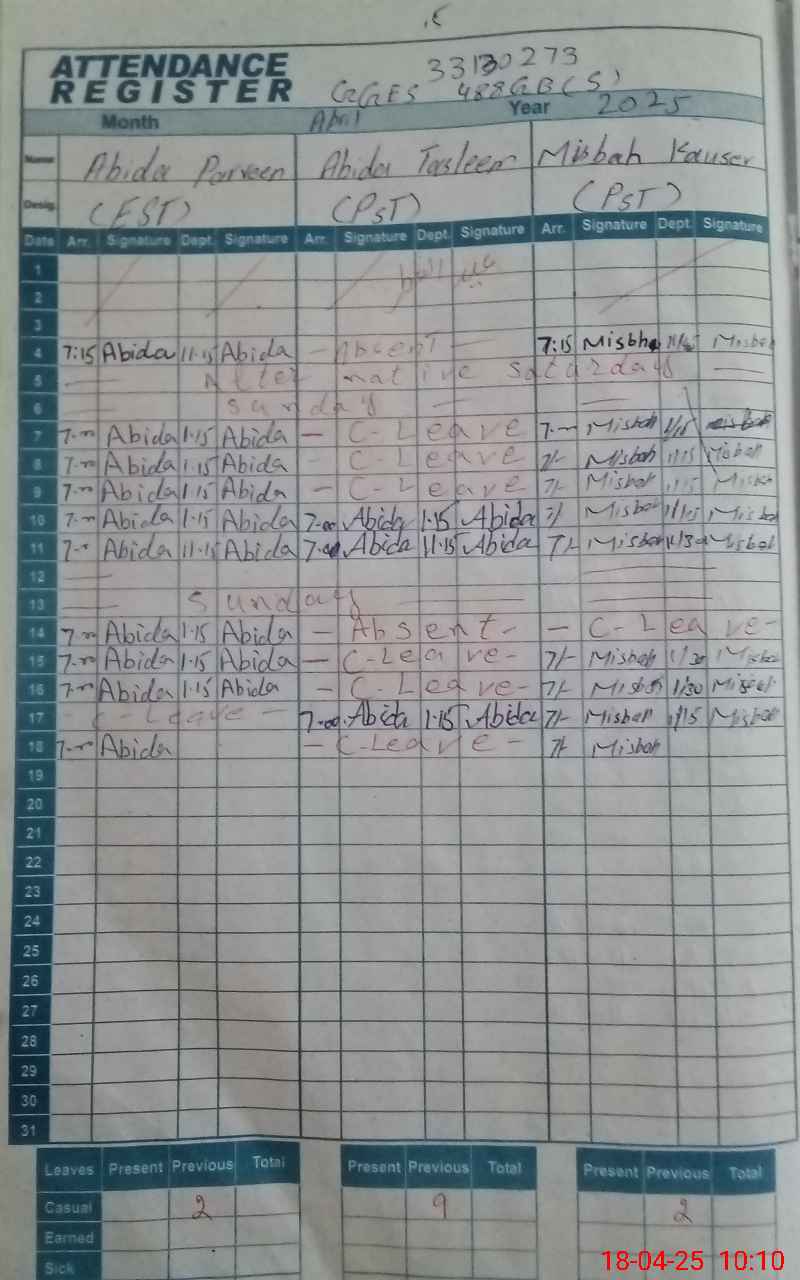 ATTENDANCE 33130273
REGISTER GGES 488GB(S)
Month April Year 2025
Name Abida Parveen Abida Tasleem Misbah Kauser
Desig. (EST) (PST) (PST)
Date Arr. Signature Dept. Signature Arr. Signature Dept. Signature Arr. Signature Dept. Signature
1
2
3
4 7:15 Abida 11:15 Abida - Absent - 7:15 Misbha Misbah
5 Alternative Saturday
6 Sunday
7 Abida 1:15 Abida - C-Leave 7 Misbah 1/15
8 Abida 1:15 Abida - C-Leave 7/- Misbah 1/15 Misbah
9 Abida 1:15 Abida - C-Leave 7/- Misbah 1/15 Misbah
10 Abida 1:15 Abida 7:00 Abida 1:15 Abida 7/ Misbah 1/15 Misbah
11 Abida 11:15 Abida 7:00 Abida 11:15 Abida 7/- Misbah 11/30 Misbah
12
13 Sunday
14 Abida 1:15 Abida - Absent - - C-Leave -
15 Abida 1:15 Abida - C-Leave - 7/- Misbah 1/30 Misbah
16 Abida 1:15 Abida - C-Leave - 7/- Misbah 1/30 Misbah
17 - C-Leave - 7:00 Abida 1:15 Abida 7/- Misbah 1/15 Misbah
18 Abida - C-Leave - 7/- Misbah
19
20
21
22
23
24
25
26
27
28
29
30
31
Leaves Present Previous Total Present Previous Total Present Previous Total
Casual 2 9 2
Earned
Sick
18-04-25 10:10